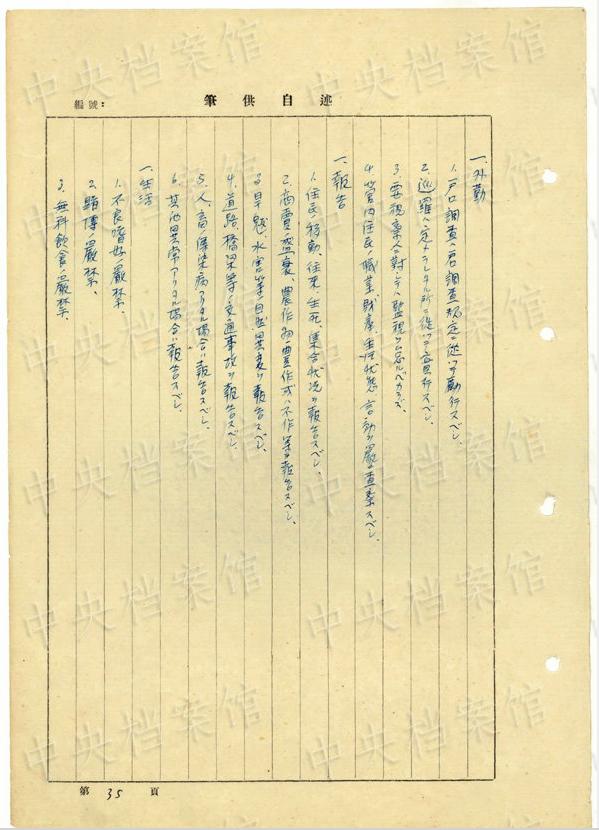 述自供筆
編號:
一、外勤
1. 戸口調査ハ戸口調査規定ニ從ツテ勵行スベシ、
2. 巡羅ハ定メラレタル所ニ從ツテ宣行スベシ、
3. 要視案人ニ對シテハ監視ヲ怠ルベカラズ、
4. 管内住民ノ職業、財産、生活狀態、言動ヲ嚴ニ査察スベシ、
一、報告
1. 住民ノ移動、往来、生死、集合狀況ヲ報告スベシ、
2. 商賣ノ盛衰、農作物ノ豊作或ハ不作等ヲ報告スベシ、
3. 旱魃、水害等ノ自然異変ヲ報告スベシ、
4. 道路、橋梁等ノ交通事故ヲ報告スベシ、
5. 人、畜ノ傳染病アリタル場合ハ報告スベシ、
6. 其他異常アリタル場合ハ報告スベシ、
一、生活
1. 不良嗜好ノ嚴禁、
2. 賭博ノ嚴禁、
3. 無料飲食ノ嚴禁、
第 35 頁
中央档案馆